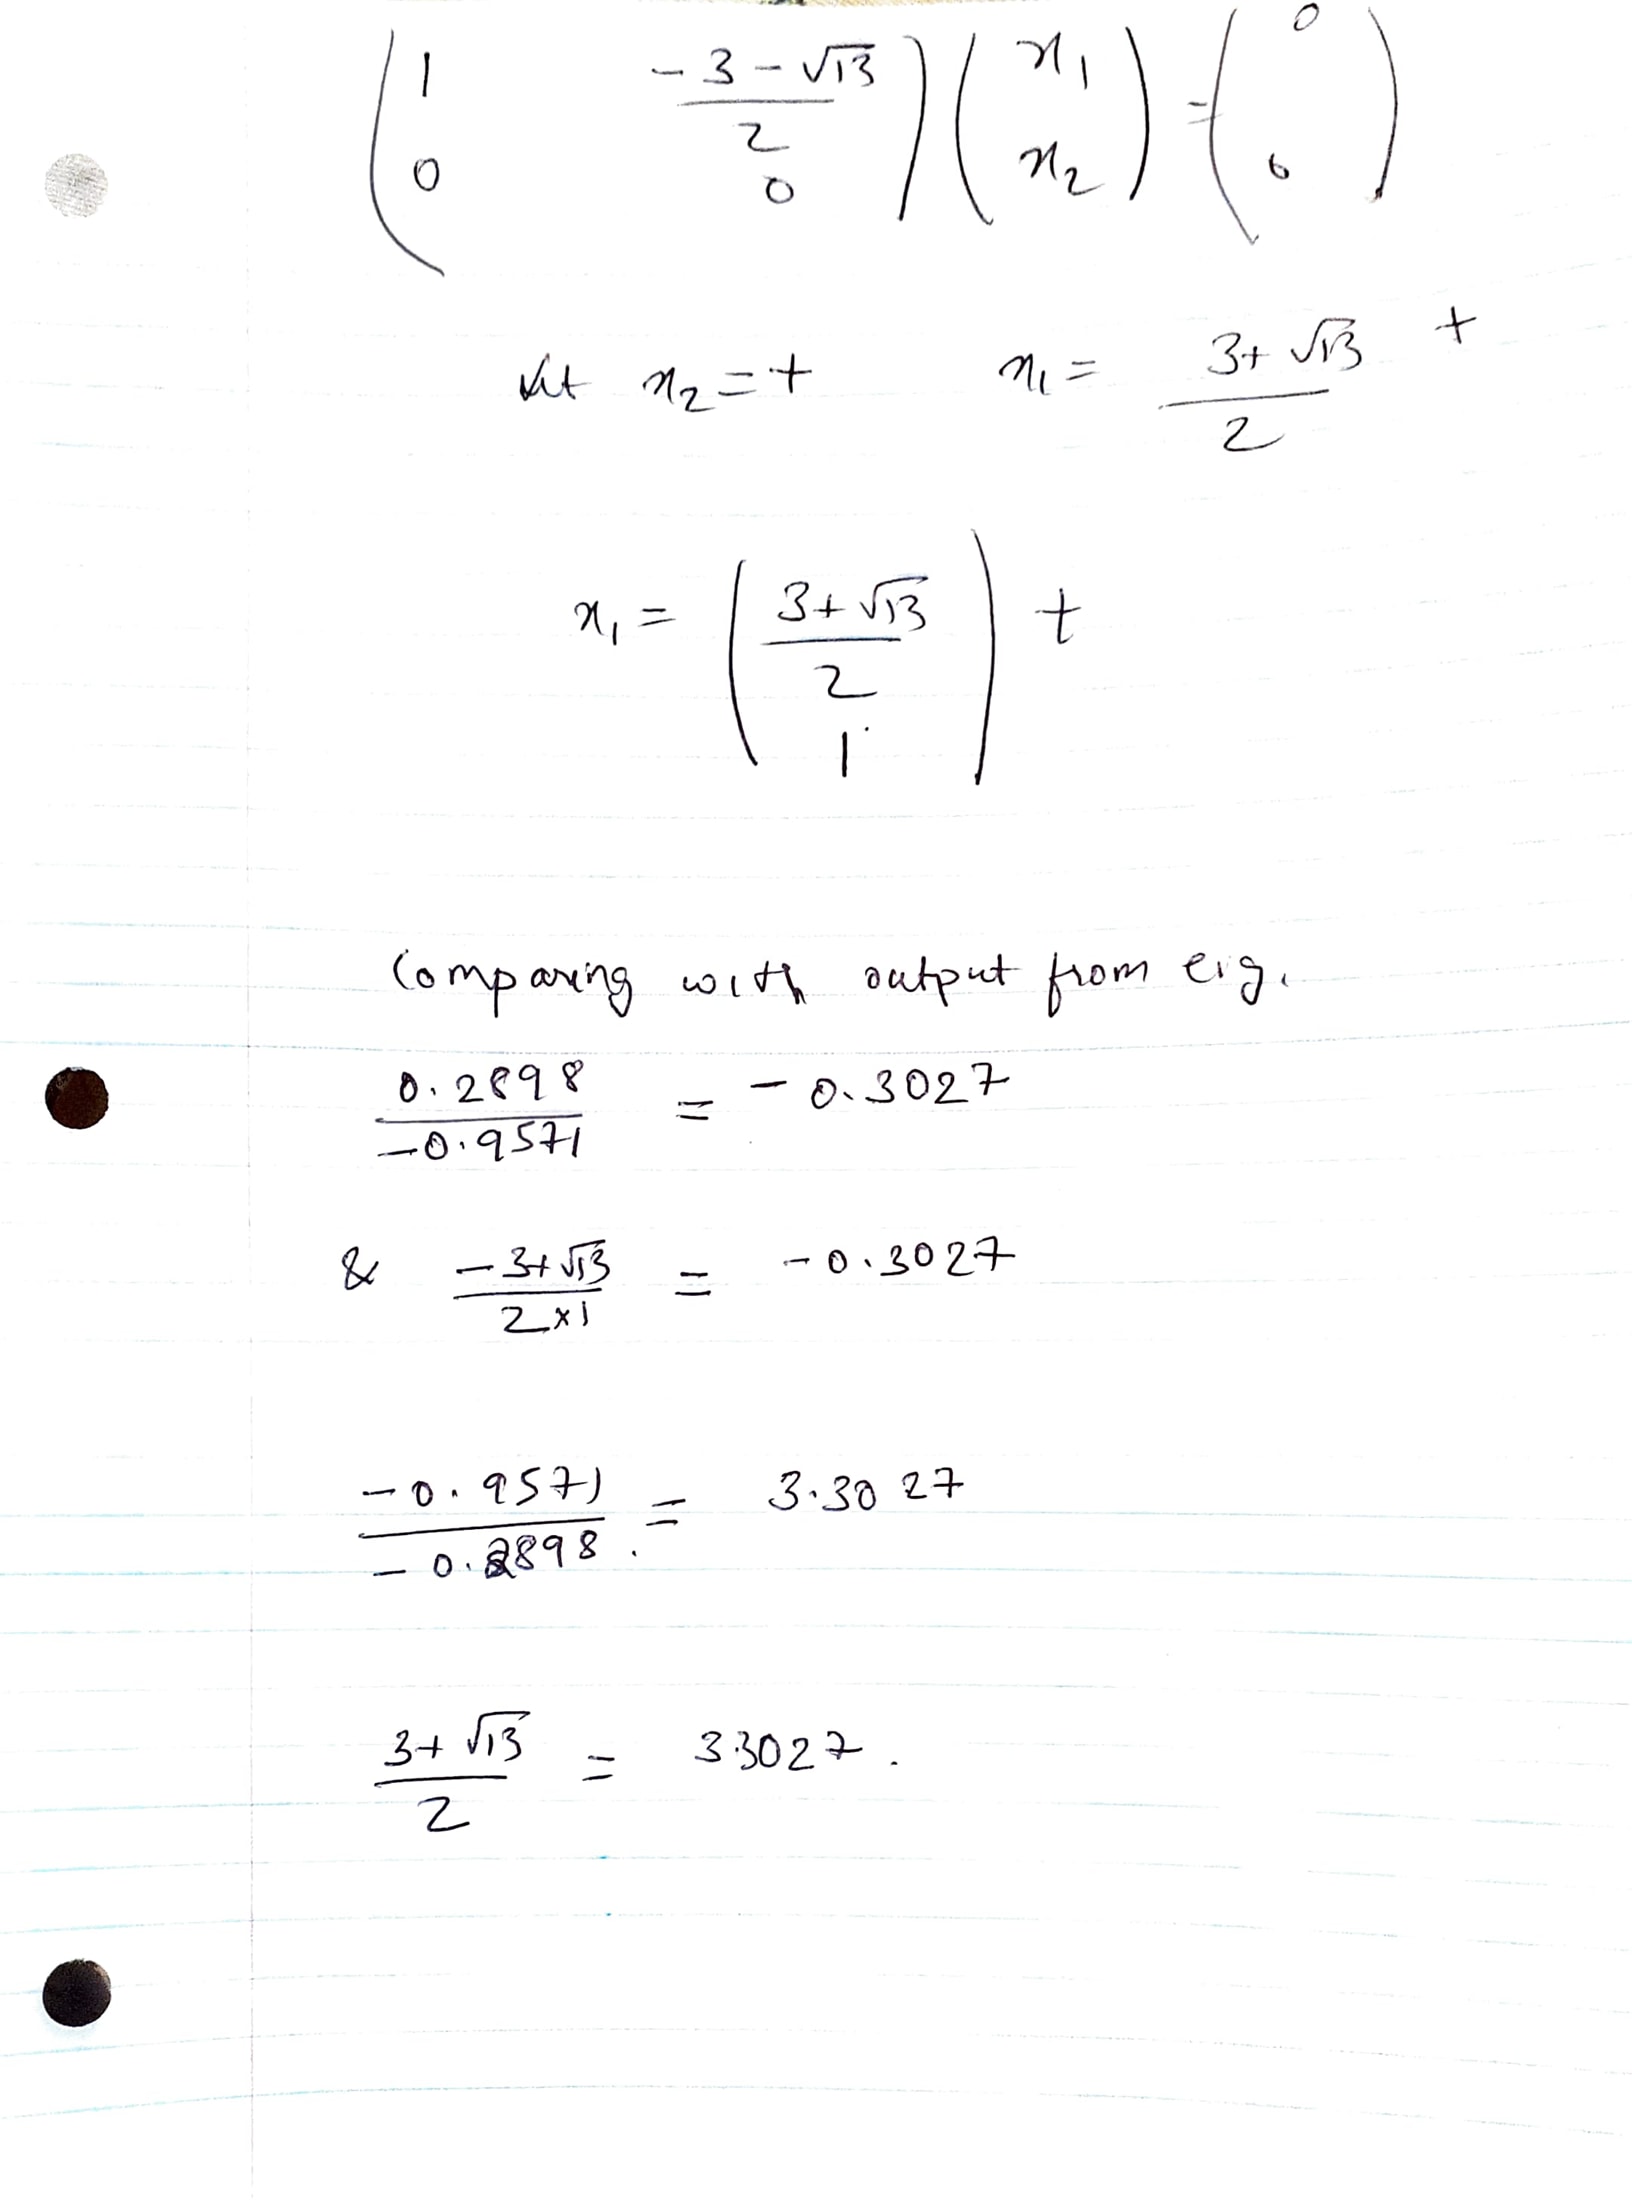 ( 1 (-3-√13)/2 ) ( x₁ ) = ( 0 )
( 0 0 ) ( x₂ ) ( 0 )
let x₂ = t x₁ = (3+√13)/2 t
x₁ = ( (3+√13)/2 ) t
( 1 )
Comparing with output from eig.
0.2898/-0.9571 = -0.3027
& (-3+√13)/(2×1) = -0.3027
-0.9571/-0.2898. = 3.3027
(3+√13)/2 = 3.3027.